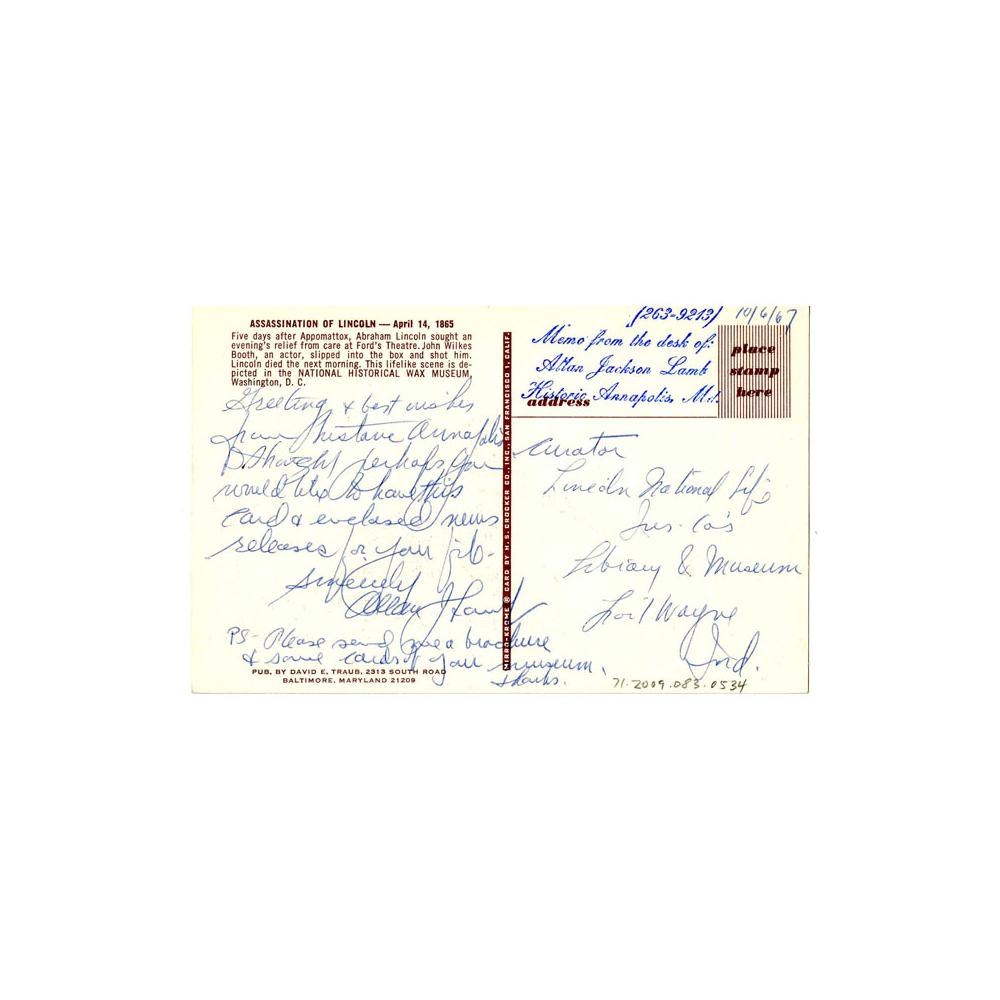 ASSASSINATION OF LINCOLN — April 14, 1865
Five days after Appomattox, Abraham Lincoln sought an
evening's relief from care at Ford's Theatre. John Wilkes
Booth, an actor, slipped into the box and shot him.
Lincoln died the next morning. This lifelike scene is de-
picted in the NATIONAL HISTORICAL WAX MUSEUM,
Washington, D. C.
Greeting & best wishes
from Historic Annapolis
I thought perhaps you
would like to have this
card & enclosed news
releases for your job-
Sincerely
Allan J Lamb
PS- Please send me a brochure
& some cards of your museum.
Thanks.
PUB. BY DAVID E. TRAUB, 2313 SOUTH ROAD
BALTIMORE, MARYLAND 21209
MIRRO-KROME ® CARD BY H. S. CROCKER CO., INC., SAN FRANCISCO 1, CALIF.
(263-9213) 10/6/67
Memo from the desk of:
Allan Jackson Lamb
Historic Annapolis, Md.
address
place
stamp
here
Curator
Lincoln National Life
Ins. Co's
Library & Museum
Fort Wayne
Ind.
71.2009.083.0534